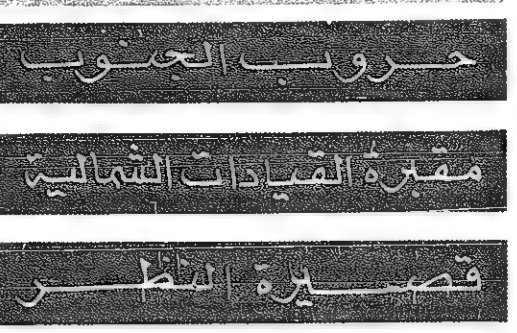 حروب الجنوب
مقبرة القيادات الشمالية
قصيرة النظر